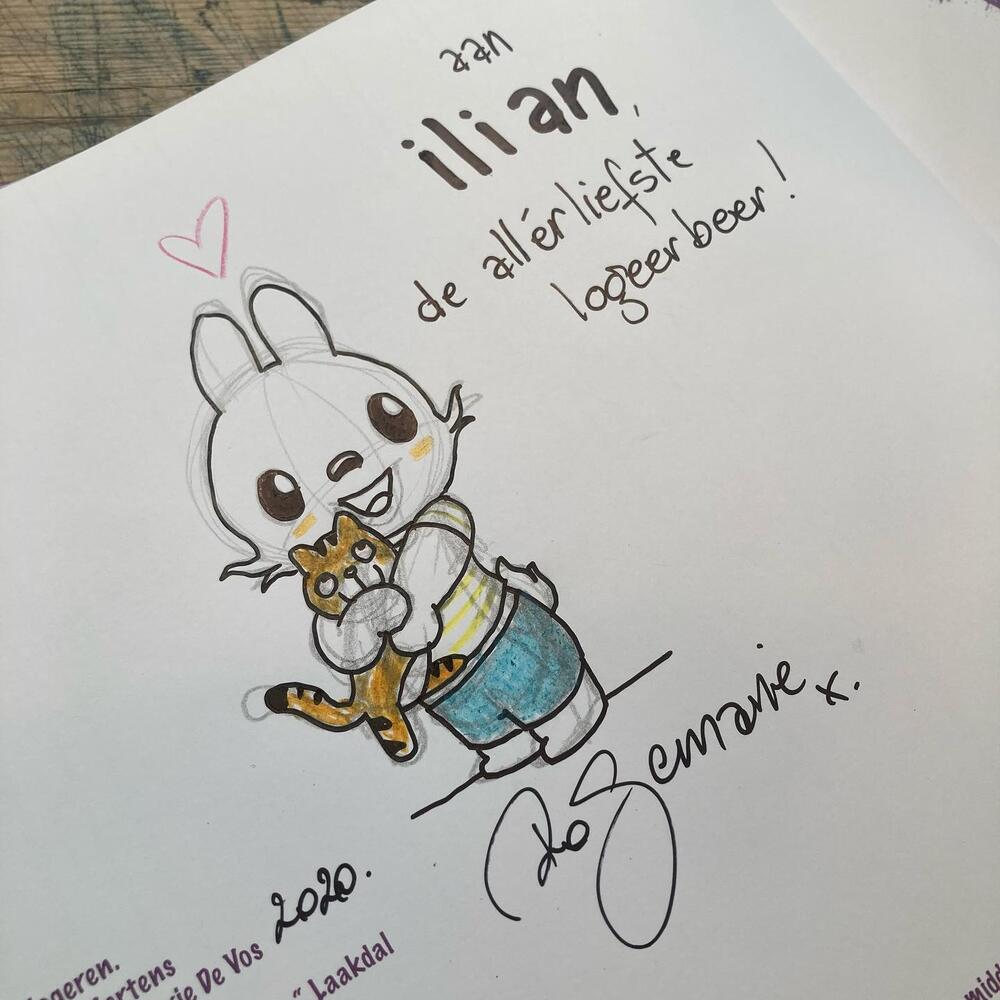 aan
ilian,
de allerliefste
logeerbeer!
Rosemarie x.
2020.
logeren.
De Vos
" Laakdal